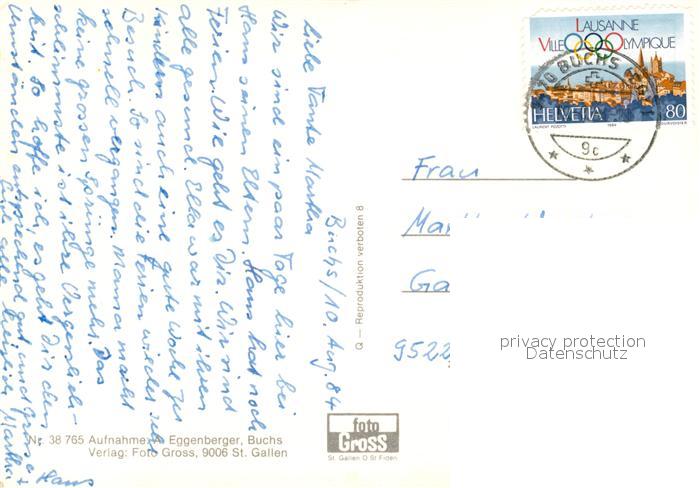 Buchs/10. Aug. 84
Liebe Tante Martha
Wir sind ein paar Tage hier bei
Hans seinen Eltern. Hans hat noch
Ferien. Wie geht es Dir. Wir sind
alle gesund. Ella war mit ihren
Kindern auch eine gute Woche zu
Besuch. So sind die Ferien wieder sehr
schnell vergangen. Mama macht
keine grossen Sprünge mehr. Das
schlimmste ist ihre Vergesslich-
keit. So hoffe ich, es geht Dir den
Umständen entsprechend gut und grüsse
Dich alle herzlich Martha +
Hans
Frau
Ma
Ga
9522
LAUSANNE
VILLE OLYMPIQUE
HELVETIA 80
LAURENT PIZZOTTI 1984 COURVOISIER
BUCHS
9c
Q — Reproduktion verboten 8
Nr. 38 765 Aufnahme: A. Eggenberger, Buchs
Verlag: Foto Gross, 9006 St. Gallen
foto
Gross
St. Gallen O St Fiden
privacy protection
Datenschutz